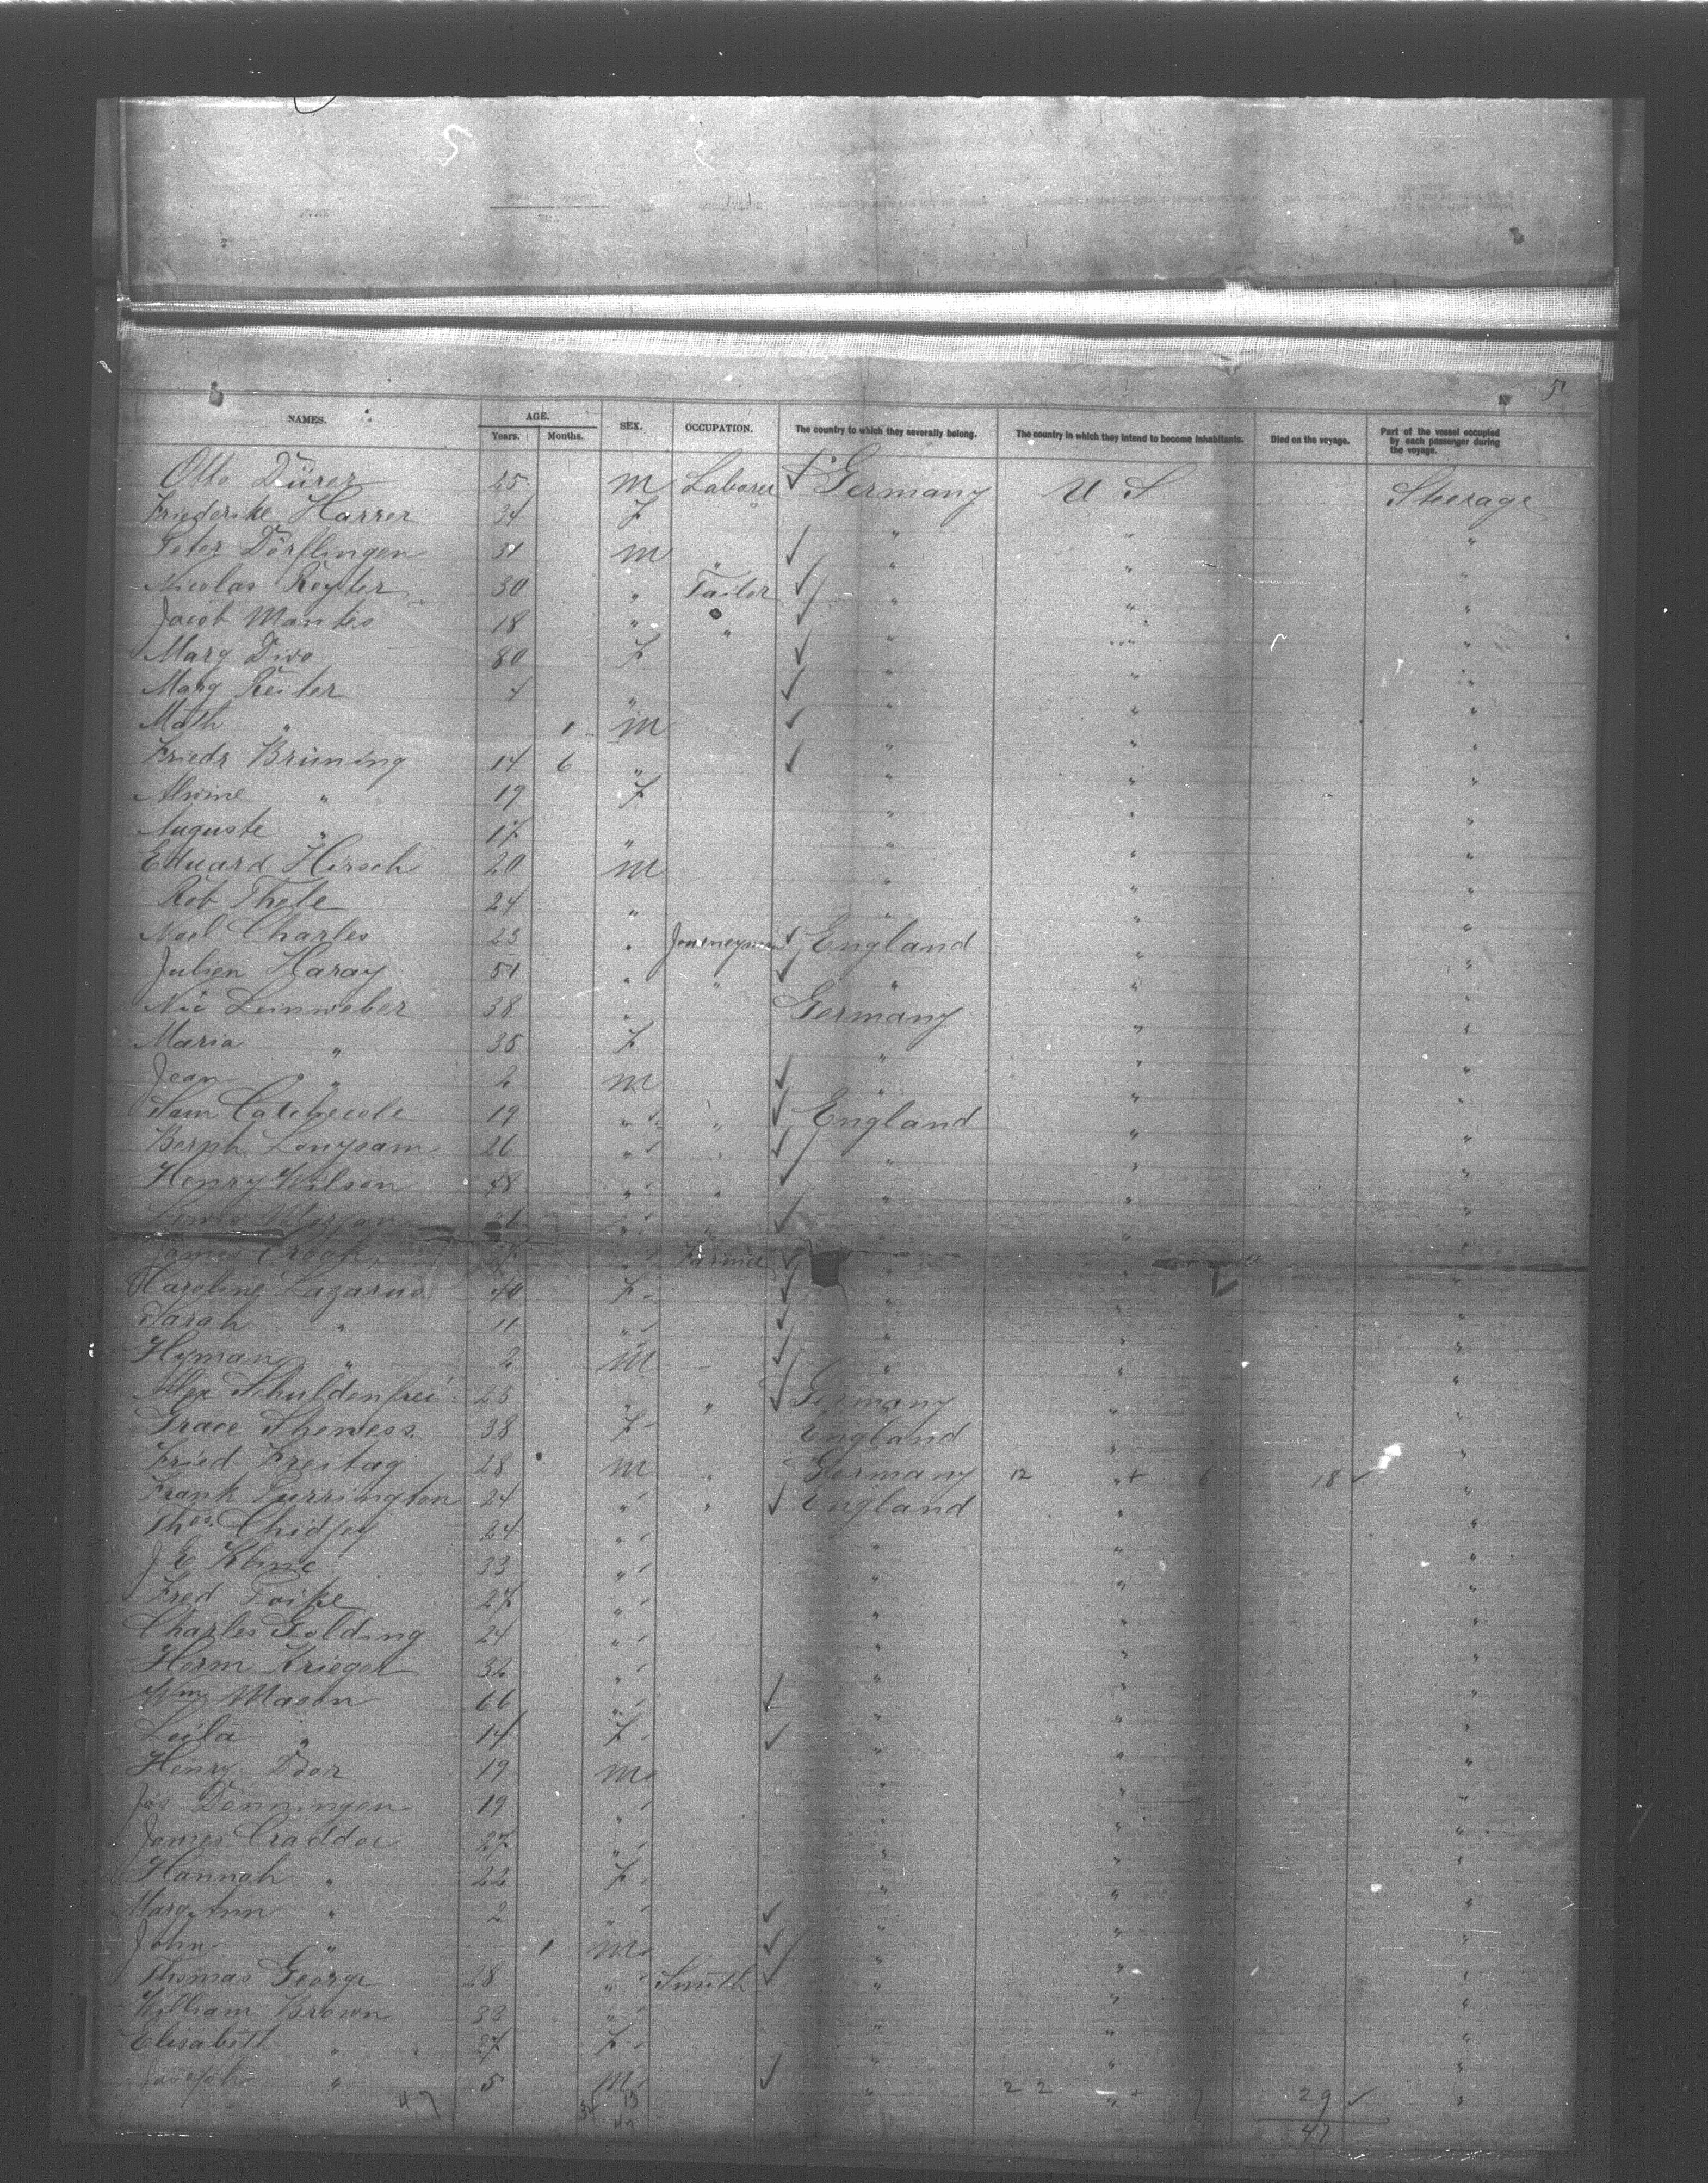 5
NAMES. AGE. SEX. OCCUPATION. The country to which they severally belong. The country in which they intend to become inhabitants. Died on the voyage. Part of the vessel occupied by each passenger during the voyage.
Years. Months.
Otto Dürer 25 M Laborer Germany U S Steerage
Friederike Harrer 34 F " " "
Peter Dörflingen 31 M " " " "
Nicolas Royter 30 " Tailor " " "
Jacob Mantes 18 " " " " "
Marg Divo 80 F " " "
Marg Reiter 4 " " " "
Math " 1 M " " "
Friedr Brüning 14 6 " " " "
Alwine " 19 F " " "
Auguste " 17 " " " "
Eduard Hirsch 20 M " " "
Rob Thele 24 " " " "
Noel Charles 23 " Journeyman England " "
Julien Haray 51 " " " " "
Nic Leinweber 38 " Germany " "
Maria " 35 F " " "
Jean " 2 M " " "
Sam Catchecole 19 " " England " "
Berph Longsam 26 " " " " "
Henry Wilson 48 " " " " "
Lewis Morgan " " " " "
James Crock " Farmer " " "
Karoline Lazarus 40 F " " "
Sarah " 11 " " " "
Hyman " 2 M " " "
Alex Schuldenfrei 25 " " Germany " "
Grace Sheness 38 F England " "
Fried Freitag 28 M " Germany 12 " + 6 18 "
Frank Purrington 24 " " England " "
Thos. Chidjey 24 " " " "
J E Kline 33 " " " "
Fred Foike 27 " " " "
Charles Golding 24 " " " "
Herm Krieger 32 " " " "
Wm Mason 66 " " " "
Leila " 14 F " " "
Henry Door 19 M " " "
Jos Denningen 19 " " " "
James Craddoc 27 " " " "
Hannah " 22 F " " "
Marg Ann " 2 " " " "
John " 1 M " " "
Thomas George 28 " Smith " " "
William Brown 33 " " " "
Elisabeth " 27 F " " "
Joseph " 5 M " 22 " + 7 29 "
47 34 13 47
47